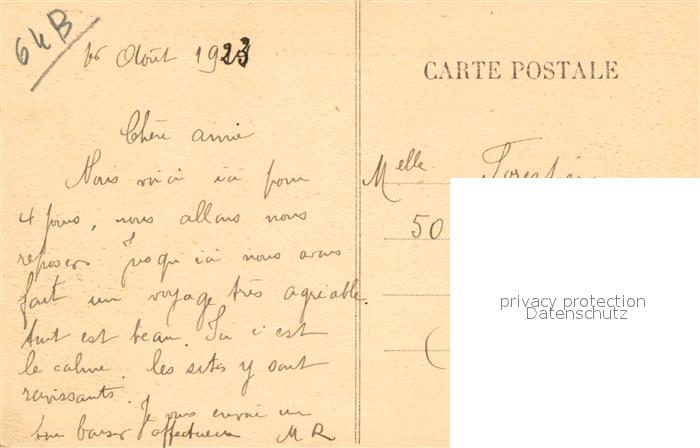 64B
16 Août 1923
CARTE POSTALE
Chère amie
Nous voici ici pour
4 jours, nous allons nous
reposer Jusqu ici nous avons
fait un voyage très agréable.
tout est beau. Ici c est
le calme. les sites y sont
ravissants.
Je vous envoie un
bon baiser affectueux MR
Melle
50
(
privacy protection
Datenschutz